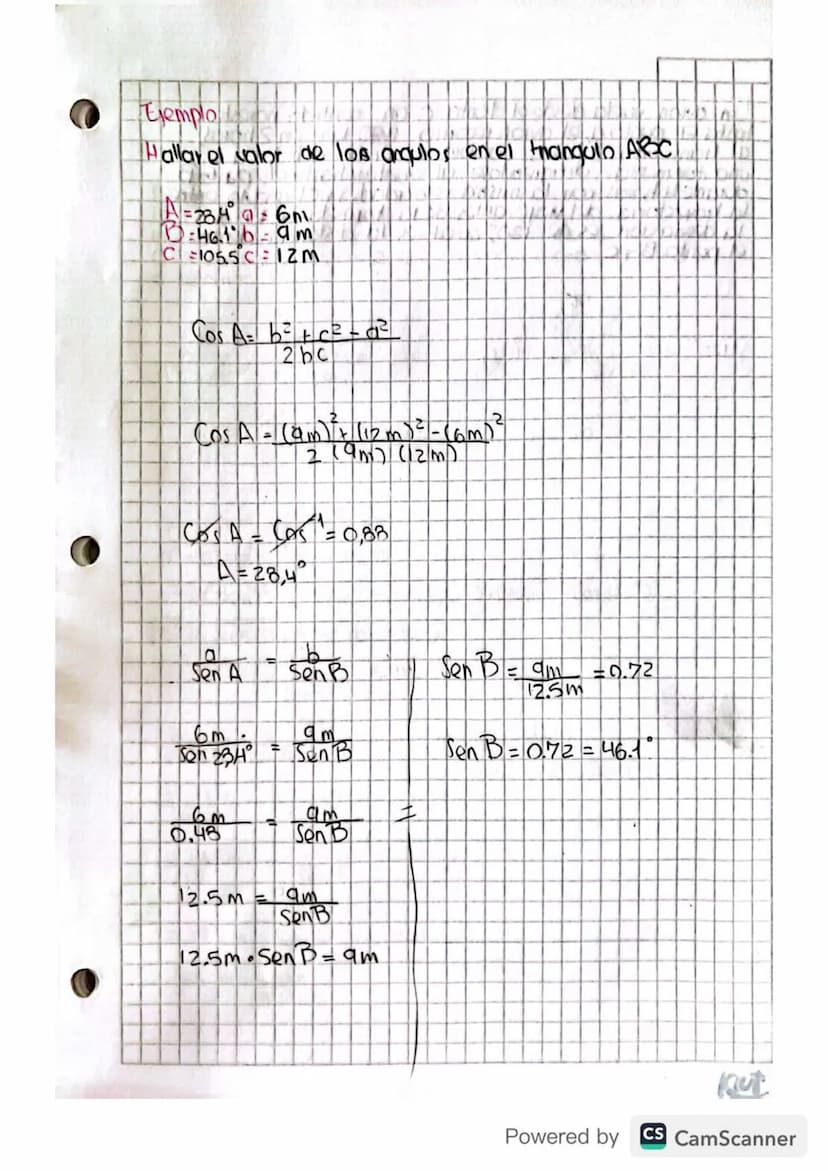 Ejemplo
Hallar el valor de los angulos en el triangulo ABC
A=28,4° a = 6m.
B=46.1° b = 9m
C =105.5° c = 12m
Cos A = b² + c² - a²
2bc
Cos A = (9m)² + (12m)² - (6m)²
2 (9m) (12m)
Cos A = Cos⁻¹ = 0,88
A = 28,4°
a = b
Sen A Sen B
6m = 9m
Sen 28,4° Sen B
6m = 9m
0.48 Sen B
12.5m = 9m
Sen B
12.5m • Sen B = 9m
=
Sen B = 9m = 0.72
12.5m
Sen B = 0.72 = 46.1°
Powered by CS CamScanner